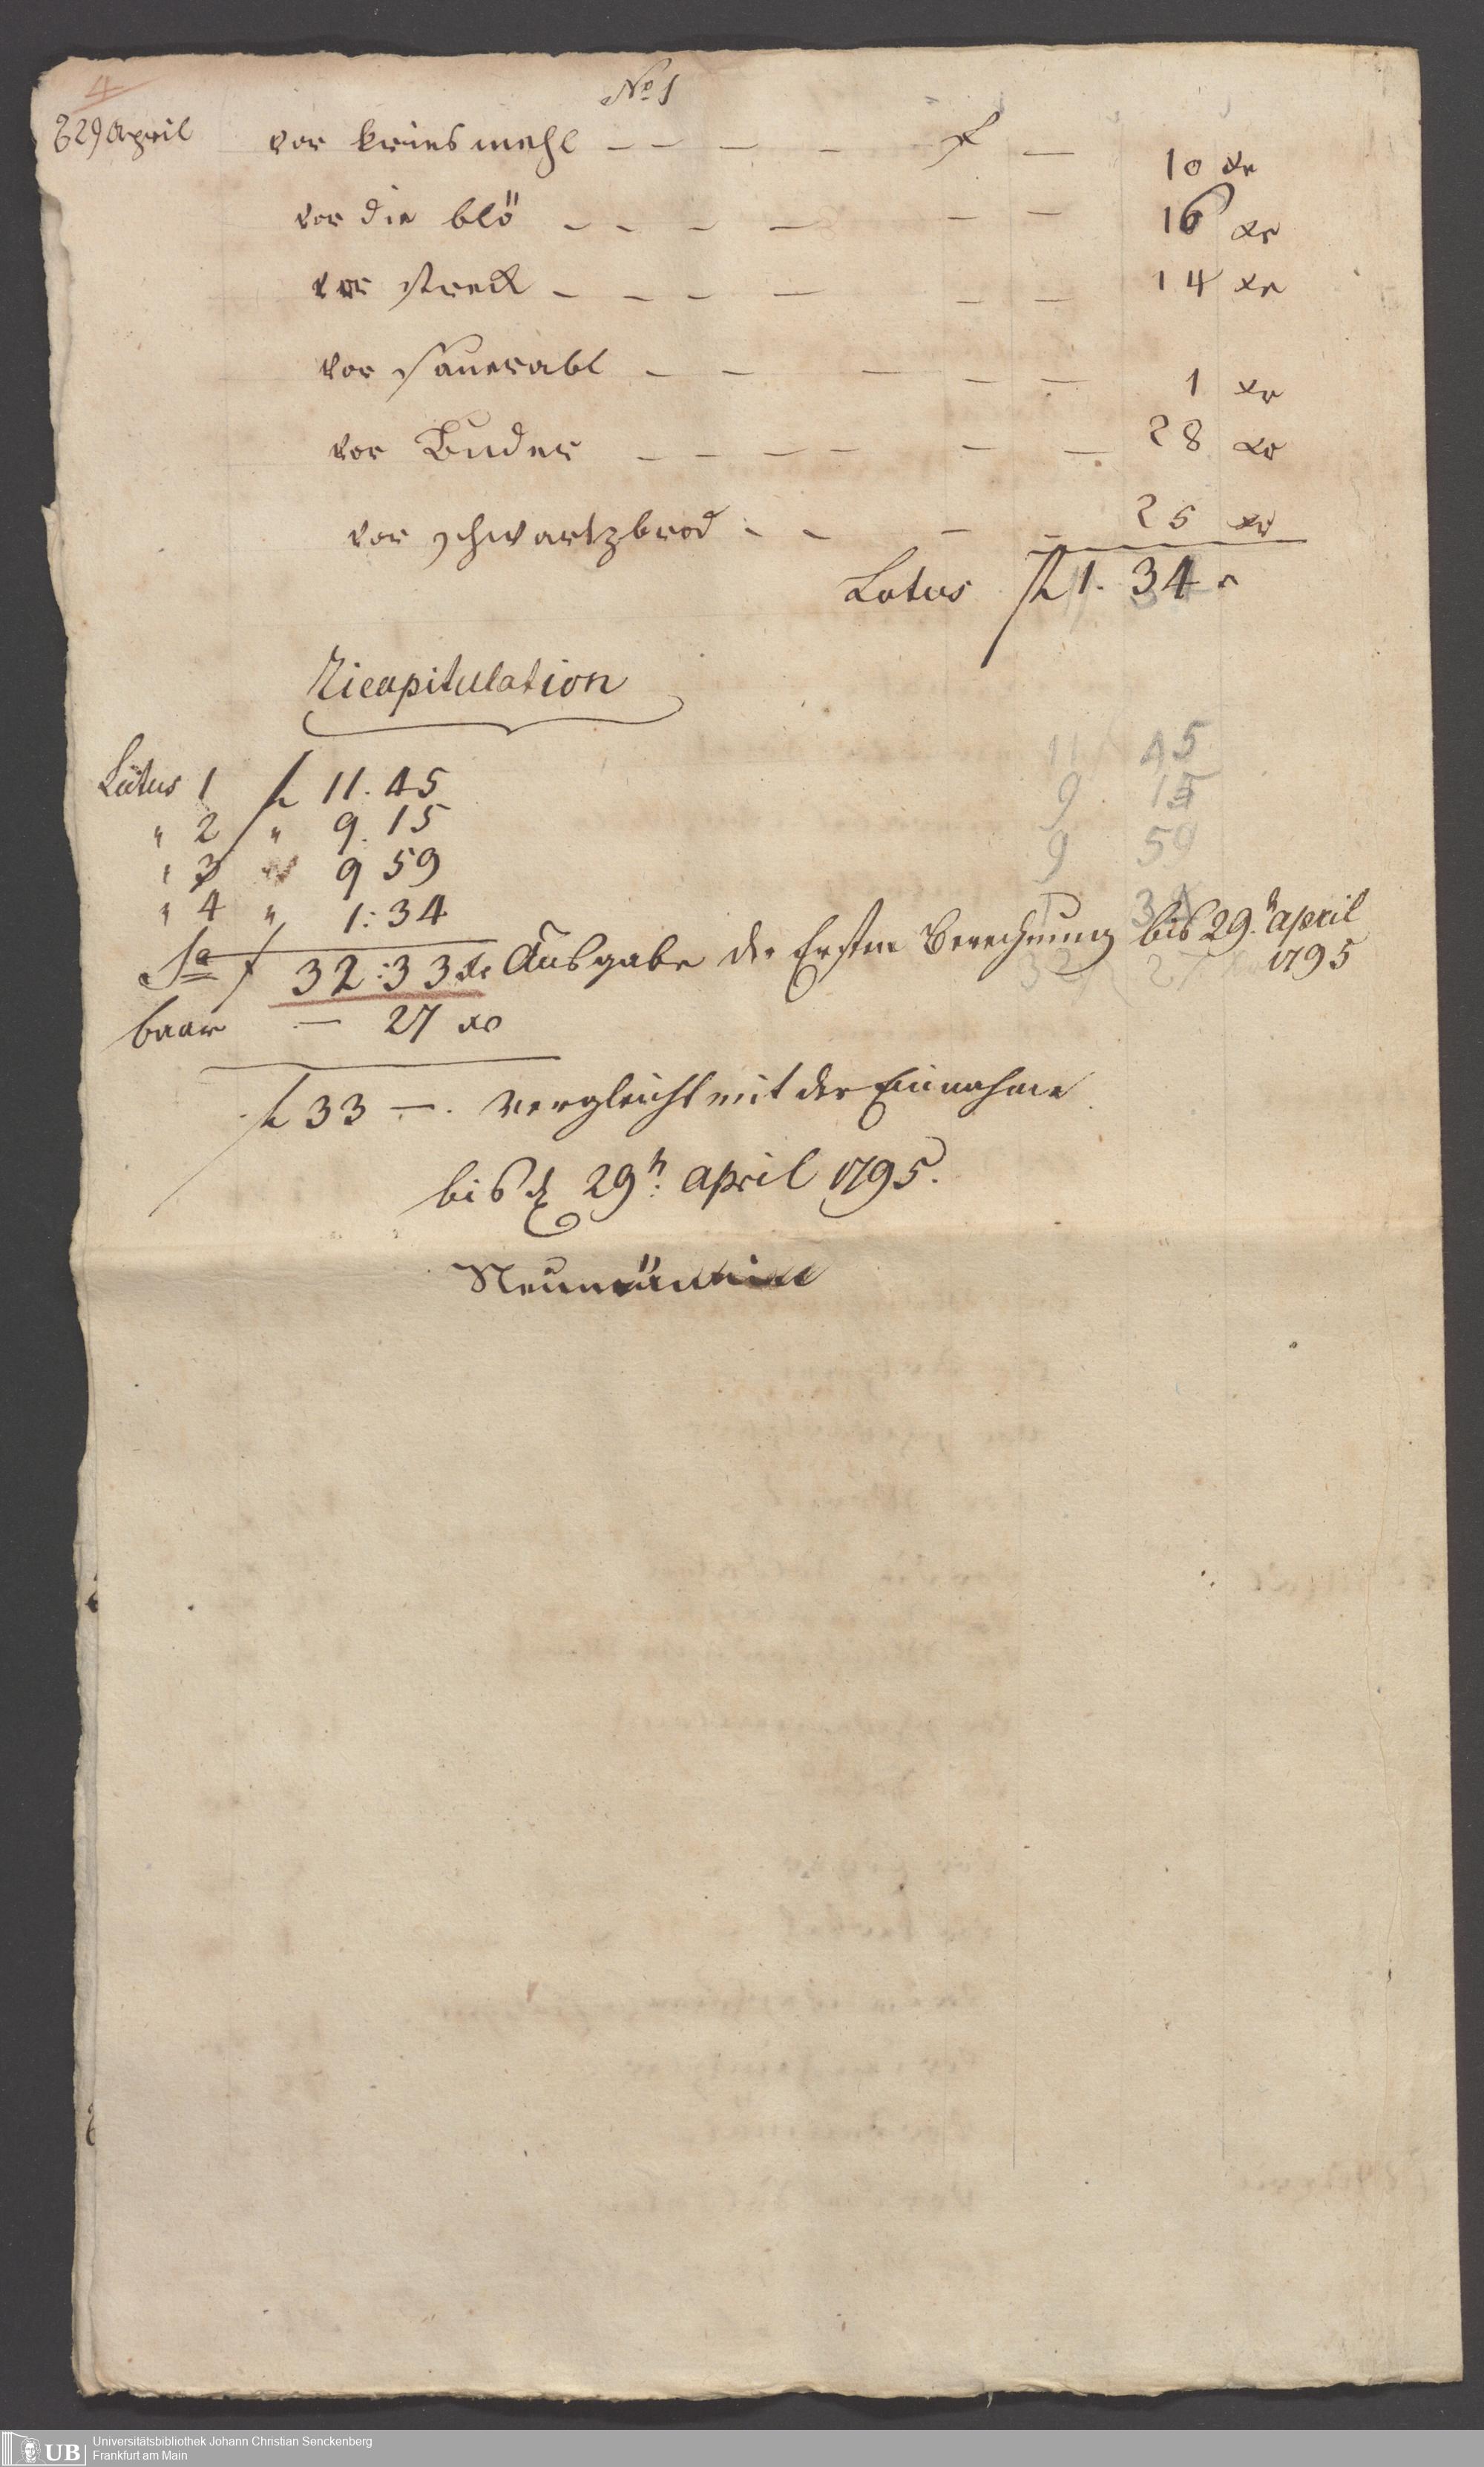 4
No 1
d 29 April vor kriesmehl - - - - f - 10 xr
vor die blö - - - - - - 16 xr
vor streck - - - - - - 14 xr
vor sauerabl - - - - - 1 xr
vor Buder - - - - - - 28 xr
vor schwartzbrod - - - - 25 xr
Latus f 1. 34
Ricapitulation
Latus 1 f 11. 45
" 2 " 9. 15
" 3 " 9 59
" 4 " 1:34
Sa f 32:33 xr Ausgabe der Ersten Berechnung bis 29. april
1795
baar — 27 xr
f 33 — . vergleicht mit der Einnahme
bis d 29t april 1795.
11 45
9 15
9 59
1 34
32 27
Universitätsbibliothek Johann Christian Senckenberg
Frankfurt am Main
UB